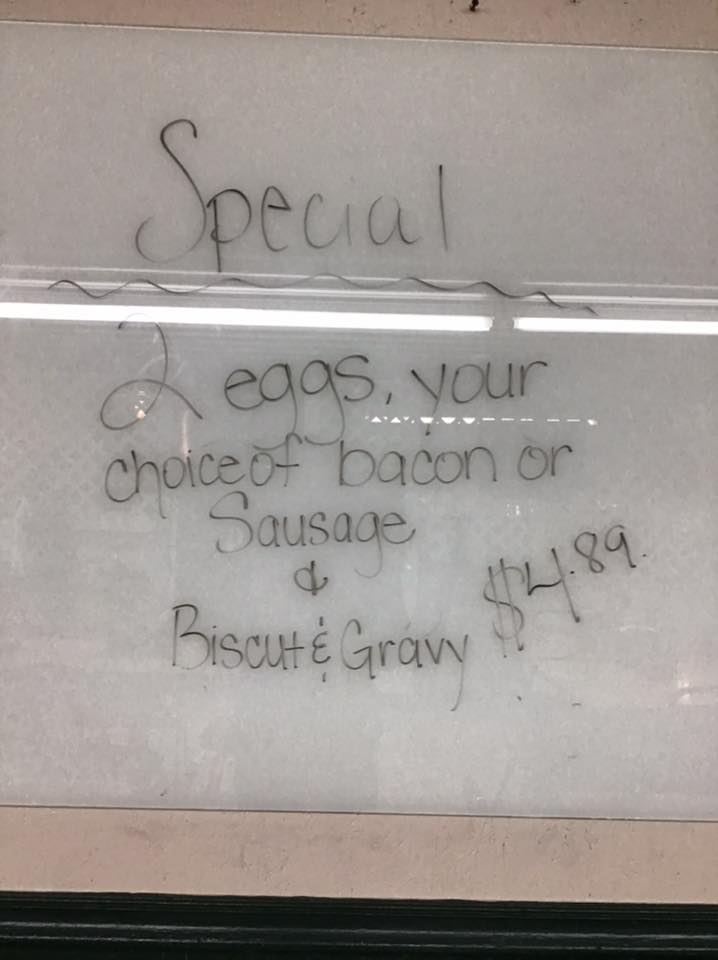 Special
2 eggs, your
choice of bacon or
Sausage
&
Biscut & Gravy $4.89.